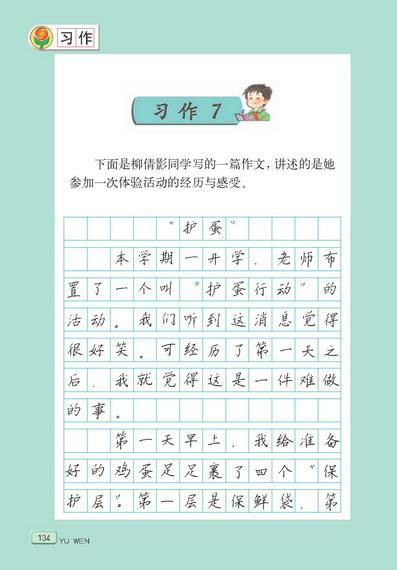 习作
习作7
下面是柳倩影同学写的一篇作文，讲述的是她
参加一次体验活动的经历与感受。
“护蛋”
本学期一开学，老师布
置了一个叫“护蛋行动”的
活动。我们听到这消息觉得
很好笑。可经历了第一天之
后，我就觉得这是一件难做
的事。
第一天早上，我给准备
好的鸡蛋足足裹了四个“保
护层”。第一层是保鲜袋，第
134 YU WEN